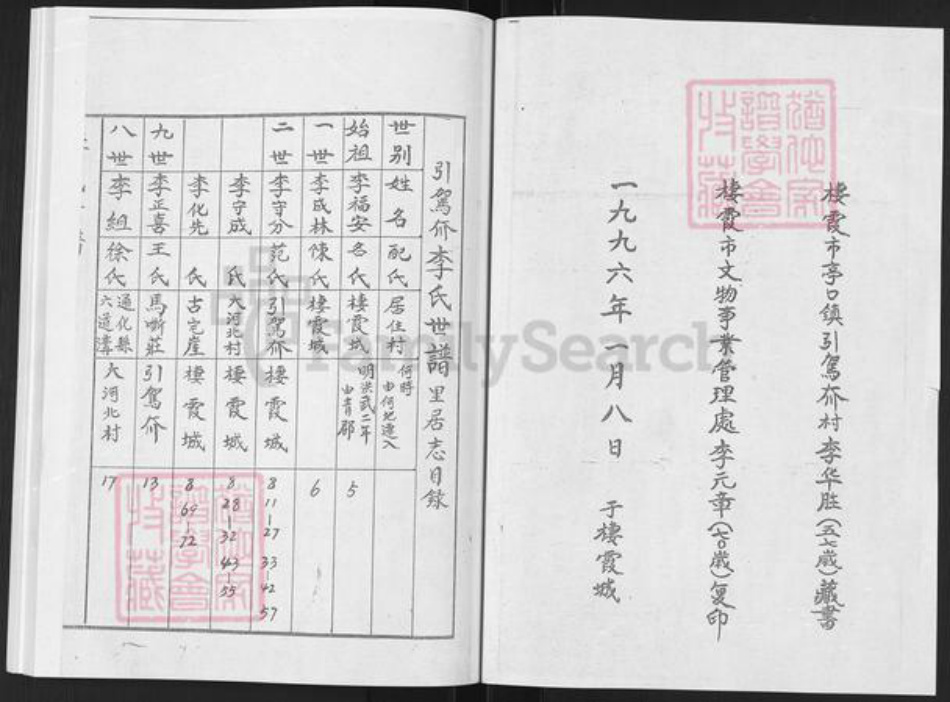 棲霞市亭口鎮引駕夼村李华胜(五七歲)藏書
棲霞市文物事業管理處李元章(七〇歲)复印
一九九六年一月八日 于棲霞城
引駕夼李氏世譜里居志目錄
世别 姓名 配氏 居住村 何時由何地遷入
始祖 李福安 名氏 棲霞城 明洪武二年由青郡 5
一世 李成林 陳氏 棲霞城 6
二世 李守分 范氏 引駕夼 棲霞城 8 11-27 33-42 57
李守成 氏 大河北村 棲霞城 8 28-32 43-55
李化先 氏 古宅崖 棲霞城 8 69-72
九世 李正喜 王氏 馬嘶莊 引駕夼 13
八世 李組 徐氏 通化縣六道溝 大河北村 17
譜學會
收藏
譜學會
收藏
FamilySearch